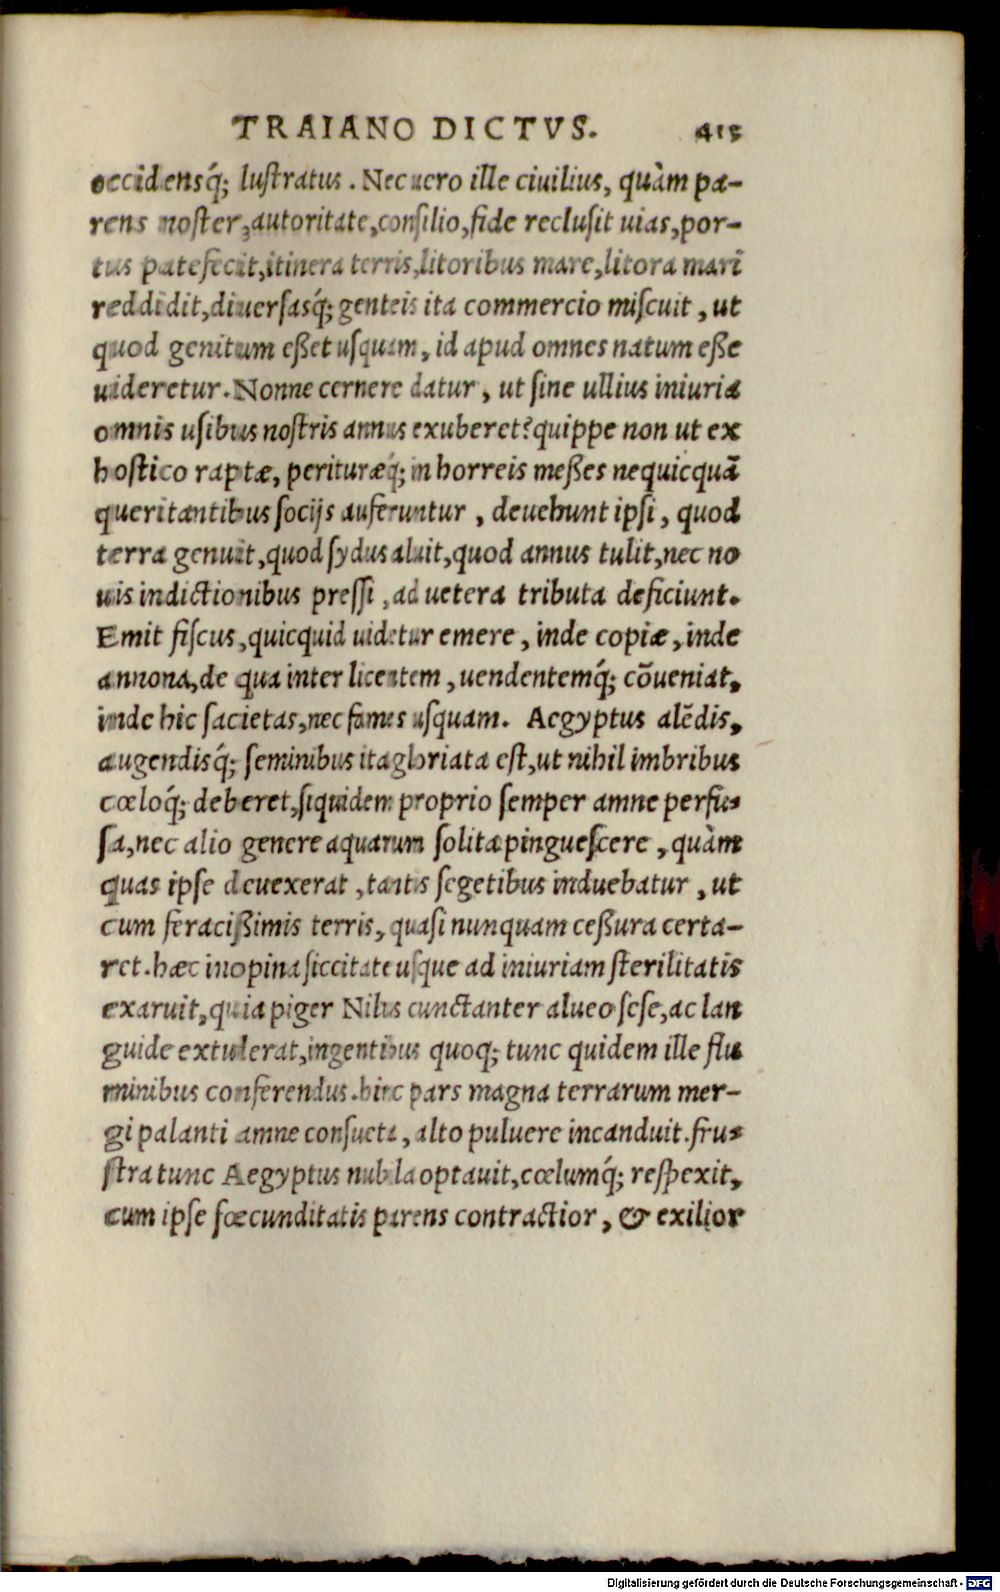 TRAIANO DICTVS. 415
occidensq́; lustratus. Nec uero ille ciuilius, quàm pa-
rens noster, autoritate, consilio, fide reclusit uias, por-
tus patefecit, itinera terris, litoribus mare, litora mari
reddidit, diuersasq́; genteis ita commercio miscuit, ut
quod genitum eßet usquam, id apud omnes natum eße
uideretur. Nonne cernere datur, ut sine ullius iniuria
omnis usibus nostris annus exuberet? quippe non ut ex
hostico raptæ, perituræq́; in horreis meßes nequicquā
queritantibus socijs auferuntur, deuehunt ipsi, quod
terra genuit, quod sydus aluit, quod annus tulit, nec no
uis indictionibus pressi, ad uetera tributa deficiunt.
Emit fiscus, quicquid uidetur emere, inde copiæ, inde
annona, de qua inter licentem, uendentemq́; cōueniat,
inde hic sacietas, nec fames usquam. Aegyptus alēdis,
augendisq́; seminibus ita gloriata est, ut nihil imbribus
cœloq́; deberet, siquidem proprio semper amne perfu-
sa, nec alio genere aquarum solita pinguescere, quàm
quas ipse deuexerat, tantis segetibus induebatur, ut
cum feracißimis terris, quasi nunquam ceßura certa-
ret. hæc inopina siccitate usque ad iniuriam sterilitatis
exaruit, quia piger Nilus cunctanter alueo sese, ac lan
guide extulerat, ingentibus quoq; tunc quidem ille flu
minibus conferendus. hinc pars magna terrarum mer-
gi palanti amne consueta, alto puluere incanduit. fru-
stra tunc Aegyptus nubila optauit, cœlumq́; respexit,
cum ipse fœcunditatis parens contractior, & exilior
Digitalisierung gefördert durch die Deutsche Forschungsgemeinschaft - DFG